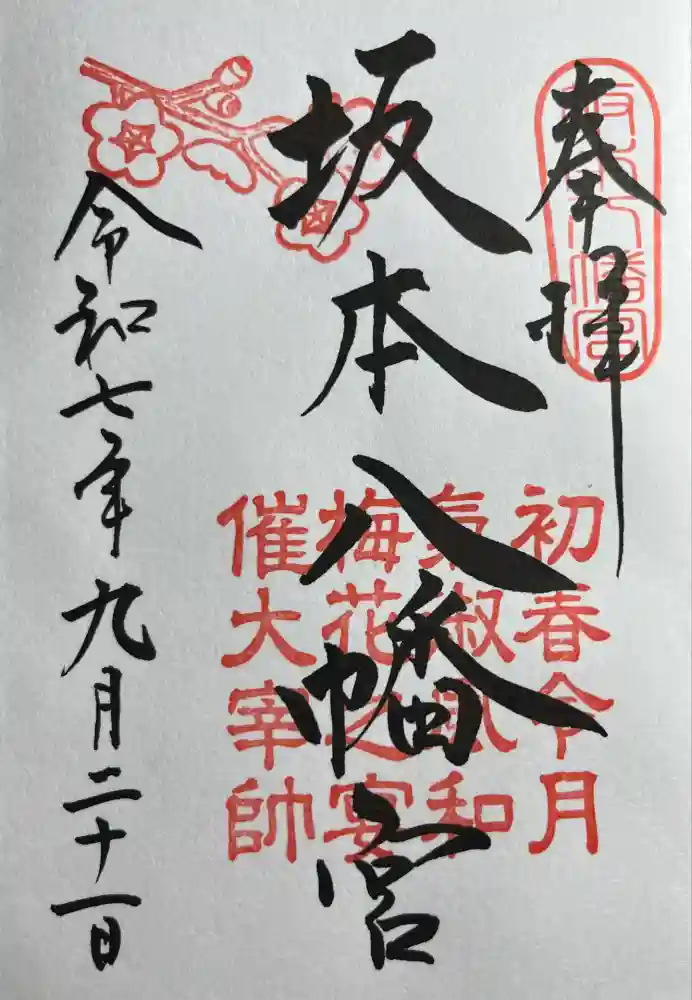 奉拝
坂本八幡宮
初春令月
氣淑風和
梅花之宴
催大宰帥
令和七年九月二十一日